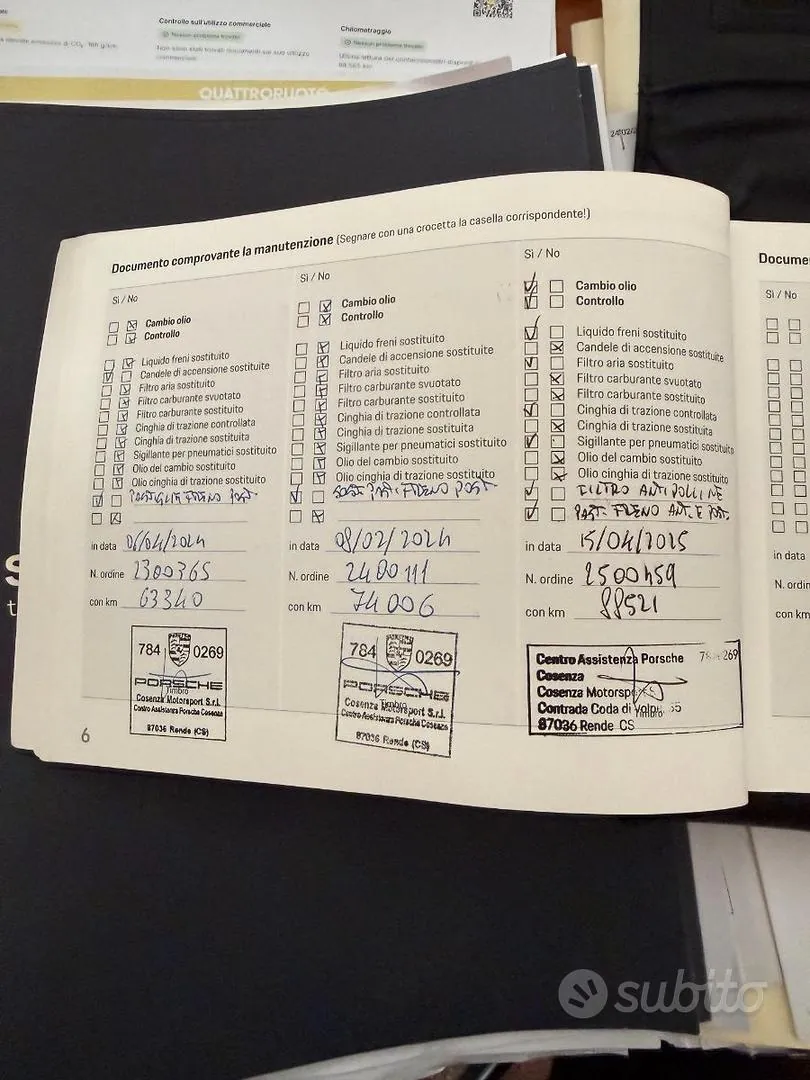 Controllo sull'utilizzo commerciale
Nessun problema trovato
Chilometraggio
Nessun problema trovato
QUATTRORUOTE
Documento comprovante la manutenzione (Segnare con una crocetta la casella corrispondente!)
Sì / No
Cambio olio
Controllo
Liquido freni sostituito
Candele di accensione sostituite
Filtro aria sostituito
Filtro carburante svuotato
Filtro carburante sostituito
Cinghia di trazione controllata
Cinghia di trazione sostituita
Sigillante per pneumatici sostituito
Olio del cambio sostituito
Olio cinghia di trazione sostituito
PASTIGLIE FRENO POST.
in data 06/04/2024
N. ordine 2300365
con km 63340
784 0269
PORSCHE
Timbro
Cosenza Motorsport S.r.l.
Centro Assistenza Porsche Cosenza
87036 Rende (CS)
6
Sì / No
Cambio olio
Controllo
Liquido freni sostituito
Candele di accensione sostituite
Filtro aria sostituito
Filtro carburante svuotato
Filtro carburante sostituito
Cinghia di trazione controllata
Cinghia di trazione sostituita
Sigillante per pneumatici sostituito
Olio del cambio sostituito
Olio cinghia di trazione sostituito
SOST. PAST. FRENO POST.
in data 08/02/2024
N. ordine 2400111
con km 74006
784 0269
PORSCHE
Timbro
Cosenza Motorsport S.r.l.
Centro Assistenza Porsche Cosenza
87036 Rende (CS)
Sì / No
Cambio olio
Controllo
Liquido freni sostituito
Candele di accensione sostituite
Filtro aria sostituito
Filtro carburante svuotato
Filtro carburante sostituito
Cinghia di trazione controllata
Cinghia di trazione sostituita
Sigillante per pneumatici sostituito
Olio del cambio sostituito
Olio cinghia di trazione sostituito
FILTRO ANTIPOLLINE
PAST. FRENO ANT. E POST.
in data 15/04/2025
N. ordine 2500459
con km 88521
Centro Assistenza Porsche
Cosenza
Cosenza Motorsport
Contrada Coda di Volpe
Timbro
87036 Rende CS
Docume
Sì / No
in data
N. ordin
con km
subito